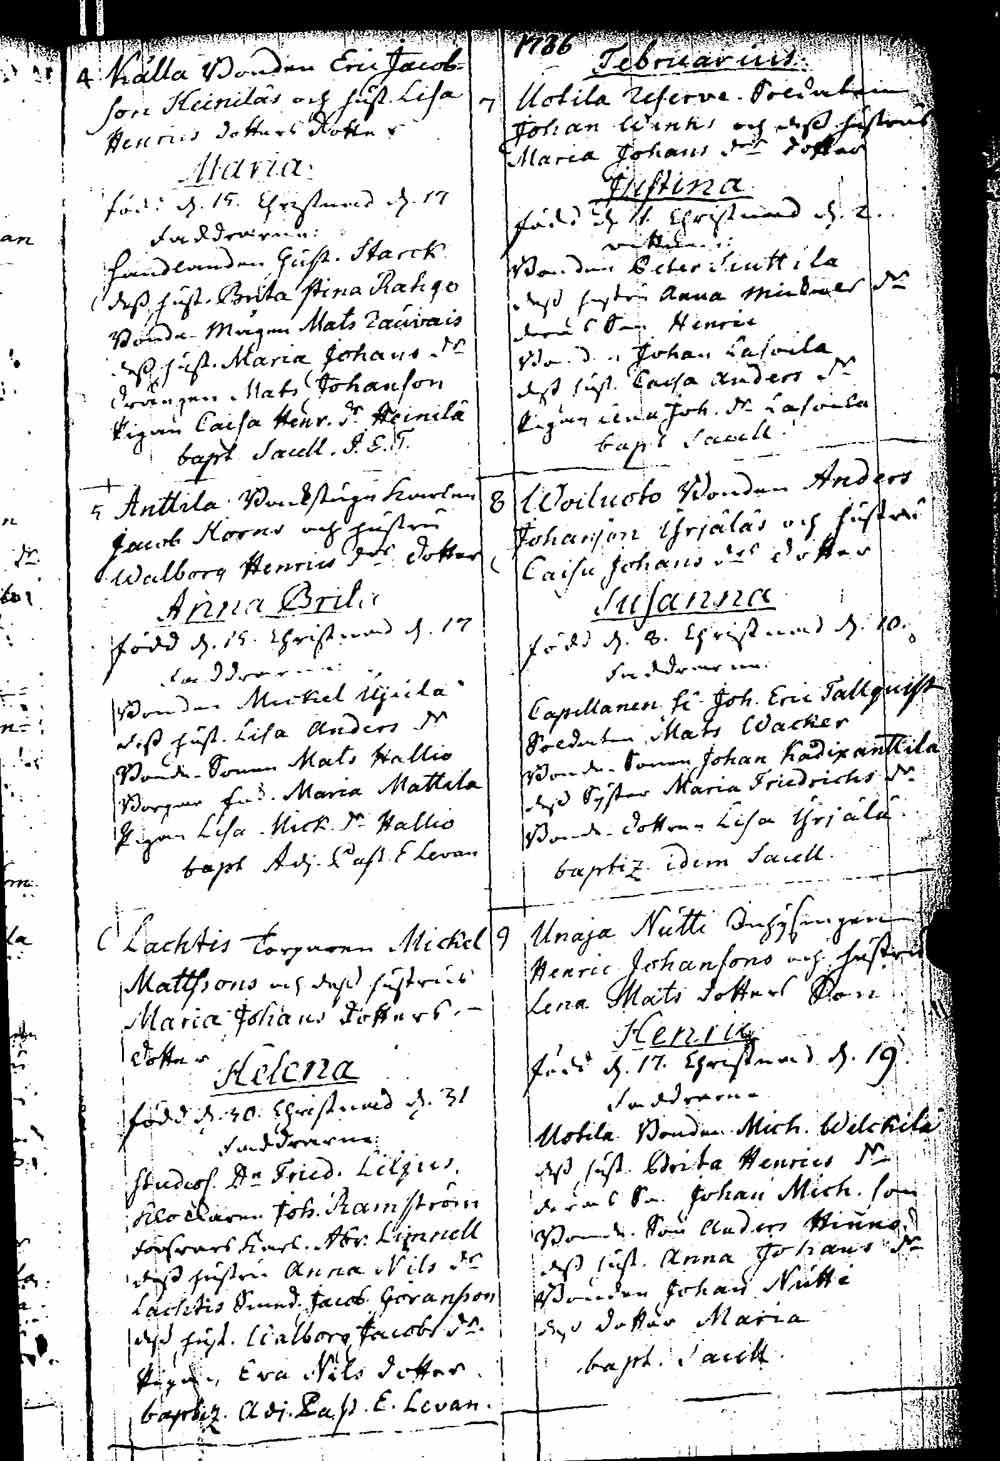 4 Källa Bonden Eric Jacob-
son Heiniläs och hust. Lisa
Henrics dotters dotter
Maria
född d. 15. Christnad d. 17
Faddrarne:
Handlanden Gust. Starck
dess hust. Brita Stina Rahgo
Bonde-Mågen Mats
dess hust. Maria Johans dr
Drängen Mats Johanson
Pigan Caisa Henr. dr Heinilä
bapt Sacell. J. E. T.
5 Anttila
Jacob Korns och hustru
Walborg Henrics drs dotter
Anna Brita
född d. 15. Christnad d. 17
Faddrarne:
Bonden Mickel
dess hust. Lisa Anders dr
Bonde-Sonen Mats Hallio
Maria Mattila
Pigan Lisa Mick. dr Hallio
bapt Adj. Past. E Levan
Lachtis Torparen Mickel
Mattsons och dess hustrus
Maria Johans dotters
dotter
Helena
född d. 30. Christnad d. 31
Faddrarne
Studios. Dn Fried. Lilius.
Klockaren Joh. Ramström
Abr. Limnell
dess hustru Anna Nils dr
Lachtis Smed. Jacob Göranson
dess hust. Walborg Jacobs dr.
Pigan, Eva Nils dotter.
baptiz. Adj. Past. E. Levan.
1786
Februarius.
7 Uotila Reserve-Soldaten
Johan Winks och dess hustrus
Maria Johans drs dotter
Justina
född d. 1. Christnad d. 2.
Bonden Peter
dess hustru Anna Mickels dr
deras Son Henric
Bonden Johan Lasoila
dess hust. Caisa Anders dr
Pigan Joh. dr Lasoila
bapt Sacell.
8 Woiluoto Bonden Anders
Johanson Yrjäläs och hustru
Caisa Johans drs dotter
Susanna
född d. 8. Christnad d. 10.
Faddrarne:
Capellanen H. Joh. Eric Tallquist
Soldaten Mats Wacker
Bonde-Sonen Johan Kadixanttila
dess Syster Maria Friedrichs dr
Bonde-dottren Lisa Yrjälä.
baptiz. idem Sacell.
9 Unaja Nütti Inhysingen
Henric Johansons och hustru
Lena Mats dotters Son
Henric
född d. 17. Christnad d. 19.
Faddrarne
Uotila Bonden Mich. Welckilä
dess hust. Brita Henrics dr
deras Son Johan Mich. son
Bonde-Son Anders Hinno
dess hust. Anna Johans dr
Bonden Johan Nütti
dess dotter Maria
bapt. Sacell.